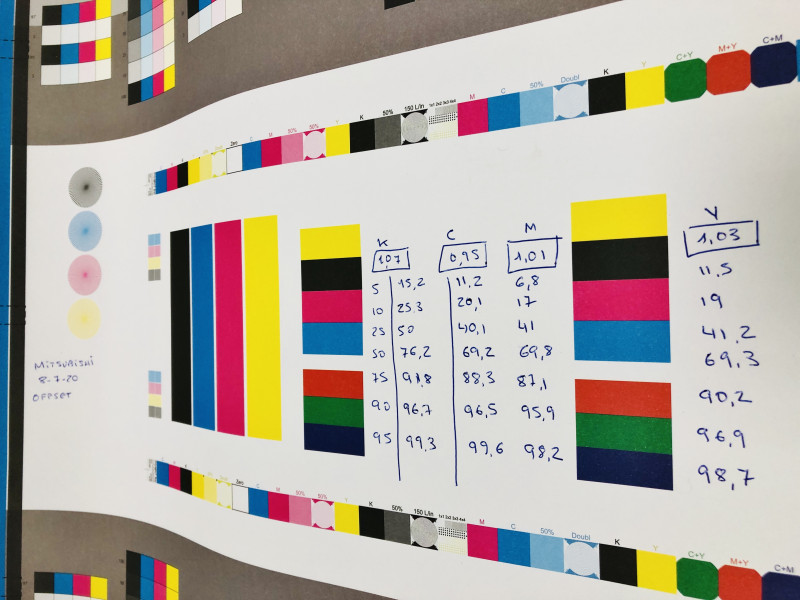 K 50% 150 L/in 1x1 2x2 3x3 4x4 M C 50% Doubl K Y C+Y M+Y C+M
K C M Y
1,07 0,95 1,01 1,03
5 15,2 11,2 6,8 11,5
10 25,3 20,1 17 19
25 50 40,1 41 41,2
50 76,2 69,2 69,8 69,3
75 91,8 88,3 87,1 90,2
90 96,7 96,5 95,9 96,9
95 99,3 99,6 98,2 98,7
MITSUBISHI
8-7-20
OFFSET
K 50% 150 L/in 1x1 2x2 3x3 4x4 M C 50% Doubl K Y C+Y M+Y C+M